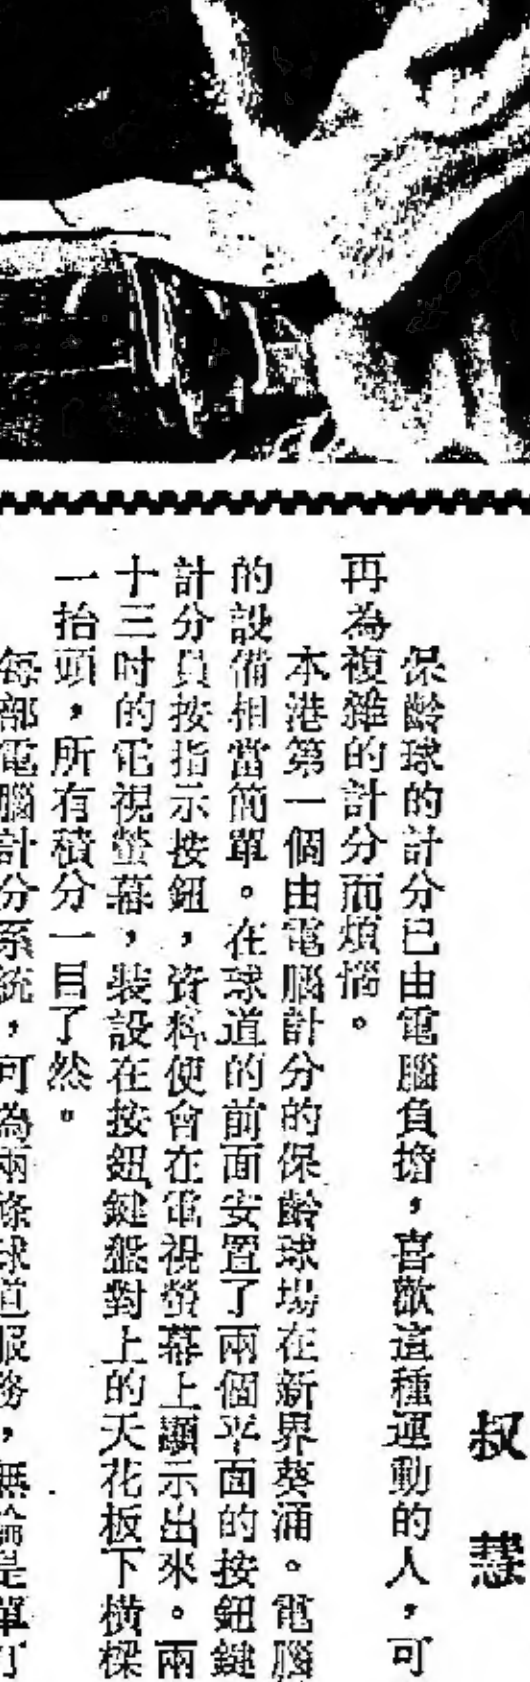 叔慧
保齡球的計分已由電腦負擔，喜歡這種運動的人，可
再為複雜的計分而煩惱。
本港第一個由電腦計分的保齡球場在新界葵涌。電腦
的設備相當簡單。在球道的前面安置了兩個平面的按鈕鍵
計分員按指示按鈕，資料便會在電視螢幕上顯示出來。兩
十三吋的電視螢幕，裝設在按鈕鍵盤對上的天花板下橫樑
一抬頭，所有積分一目了然。
每部電腦計分系統，可為兩條球道服務，無論是單打